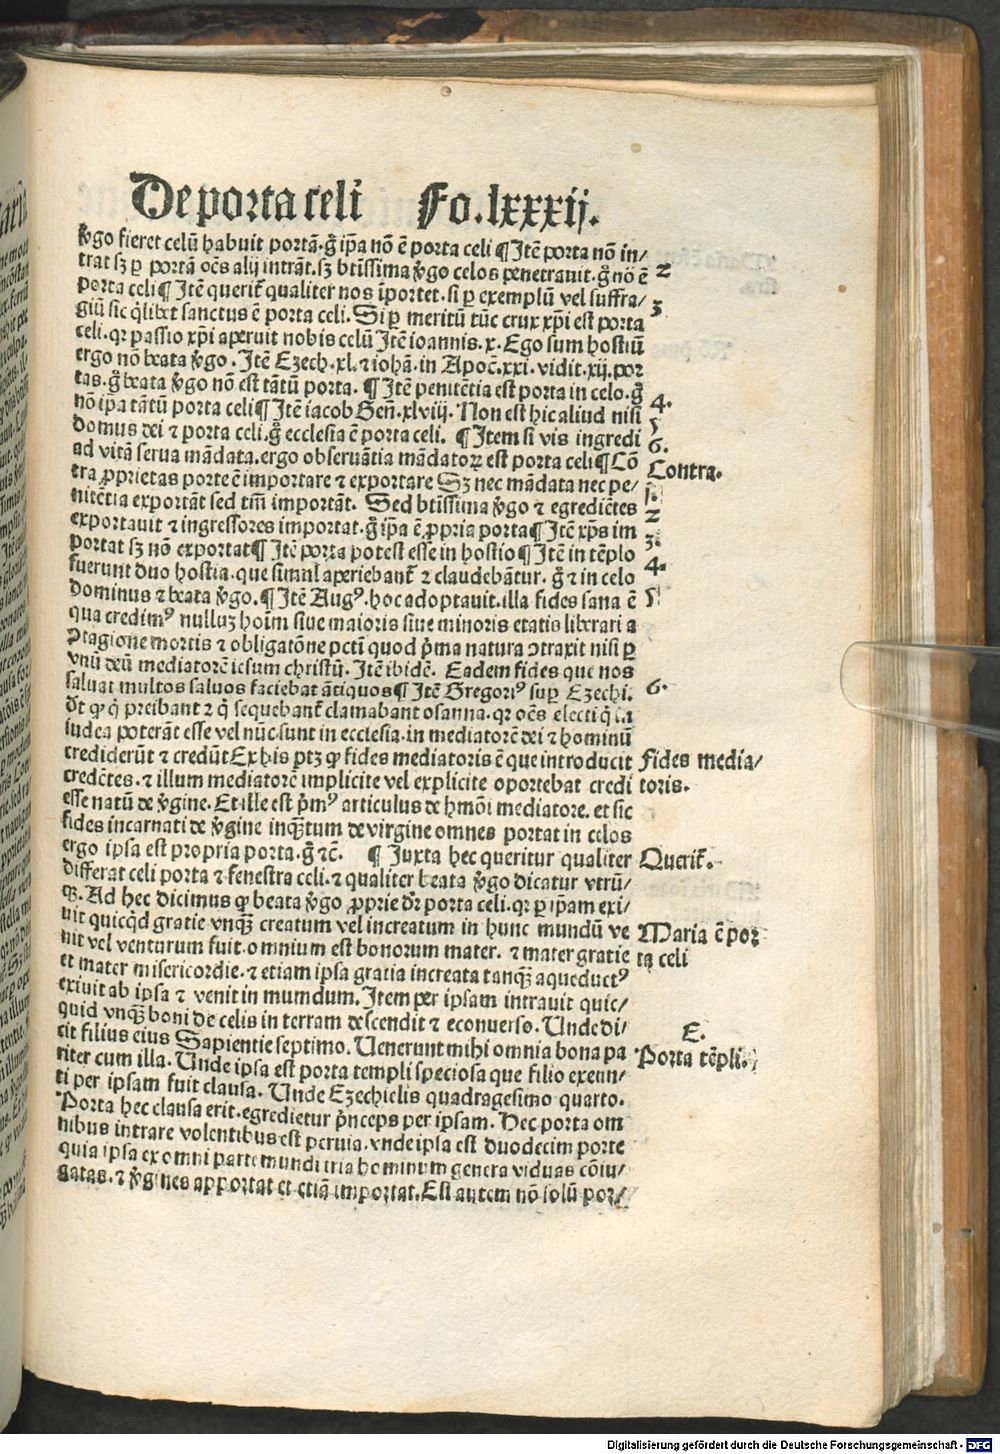 De porta celi Fo.lxxxij.
v̄go fieret celū habuit portā.g̊ ip̄a nō ē porta celi ¶ Itē porta nō in/
trat sꝫ ꝑ portā oēs alij intrāt.sꝫ btīssima v̄go celos penetrauit.g̊ nō ē 2
porta celi ¶ Itē querit̄ qualiter nos īportet.si ꝑ exemplū vel suffra/
giū sic q̄libet sanctus ē porta celi. Si ꝑ meritū tūc crux xp̄i est porta 3
celi.qꝛ passio xp̄i aperuit nobis celū Itē ioannis.x. Ego sum hostiū
ergo nō beata v̄go. Itē Ezech.xl.⁊ iohā.in Apoc̄.xxi.vidit.xij.por
tas.g̊ beata v̄go nō est tātū porta. ¶ Itē penitētia est porta in celo.g̊
nō ipa tātū porta celi ¶ Itē iacob Gen̄.xlviij. Non est hic aliud nisi 4.
domus dei ⁊ porta celi.g̊ ecclesia ē porta celi. ¶ Item si vis ingredi 5
ad vitā serua mādata.ergo obseruātia mādatoꝝ est porta celi ¶ Cō 6.
tra ꝓprietas porte ē importare ⁊ exportare Sꝫ nec mādata nec pe/ Contra.
nitētia exportāt sed tm̄ importāt. Sed btīssima v̄go ⁊ egrediētes 1.
exportauit ⁊ ingressores importat.g̊ ip̄a ē ꝓpria porta ¶ Itē xp̄s im 2
portat sꝫ nō exportat ¶ Itē porta potest esse in hostio ¶ Itē in tēplo 3.
fuerunt duo hostia.que simul aperiebant̄ ⁊ claudebātur. g̊ ⁊ in celo 4.
dominus ⁊ beata v̄go. ¶ Itē Augꝰ.hoc adoptauit.illa fides sana ē 5
qua credimꝰ nulluꝫ hoīm siue maioris siue minoris etatis liberari a
ꝯtagione mortis ⁊ obligatōne pcti quod p̄ma natura ꝯtraxit nisi ꝑ
vnū deū mediatorē iesum christū. Itē ibidē. Eadem fides que nos
saluat multos saluos faciebat ātiquos ¶ Itē Gregoriꝰ suꝑ Ezechi. 6.
dt̄ ꝙ q̇ preibant ⁊ q̇ sequebant̄ clamabant osanna.qꝛ oēs electi q̇ in
iudea poterāt esse vel nūc sunt in ecclesia.in mediatorē dei ⁊ hominū
crediderūt ⁊ credūt Ex his ptꝫ ꝙ fides mediatoris ē que introducit Fides media/
credētes.⁊ illum mediatorē implicite vel explicite oportebat credi toris.
esse natū de v̄gine. Et ille est p̄mꝰ articulus de hmōi mediatore.et sic
fides incarnati de v̄gine inqꝫtum de virgine omnes portat in celos
ergo ipsa est propria porta.g̊ ⁊c̄. ¶ Juxta hec queritur qualiter Querit̄.
differat celi porta ⁊ fenestra celi.⁊ qualiter beata v̄go dicatur vtrū/
qꝫ. Ad hec dicimus ꝙ beata v̄go ꝓprie dr̄ porta celi.qꝛ ꝑ ip̄am exi/
uit quicq̇d gratie vnqꝫ creatum vel increatum in hunc mundū ve Maria ē por
nit vel venturum fuit.omnium est bonorum mater. ⁊ mater gratie ta celi
et mater misericordie.⁊ etiam ipsa gratia increata tanqꝫ aqueductꝰ
exiuit ab ipsa ⁊ venit in mumdum. Item per ipsam intrauit quic/
quid vnqꝫ boni de celis in terram descendit ⁊ econuerso. Unde di/ E.
cit filius eius Sapientie septimo. Uenerunt mihi omnia bona pa Porta tēpli.
riter cum illa. Unde ipsa est porta templi speciosa que filio exeun/
ti per ipsam fuit clausa. Unde Ezechielis quadragesimo quarto.
Porta hec clausa erit.egredietur p̄nceps per ipsam. Hec porta om
nibus intrare volentibus est peruia.vnde ipsa est duodecim porte
quia ipsa ex omni parte mundi tria hominum genera viduas cōiu/
gatas.⁊ v̄gines apportat et etiā importat. Est autem nō solū por/
Digitalisierung gefördert durch die Deutsche Forschungsgemeinschaft - DFG